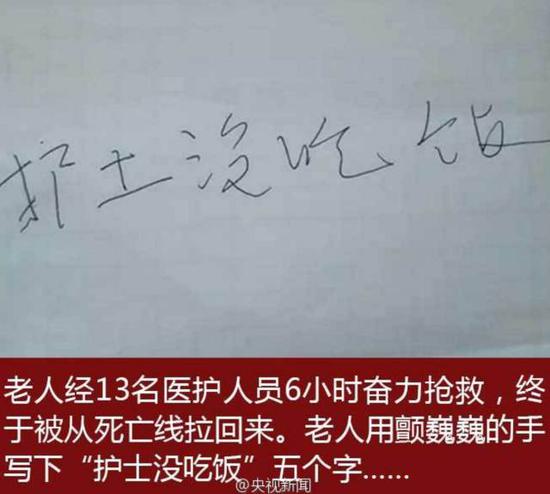 护士没吃饭
老人经13名医护人员6小时奋力抢救，终
于被从死亡线拉回来。老人用颤巍巍的手
写下“护士没吃饭”五个字……
@央视新闻